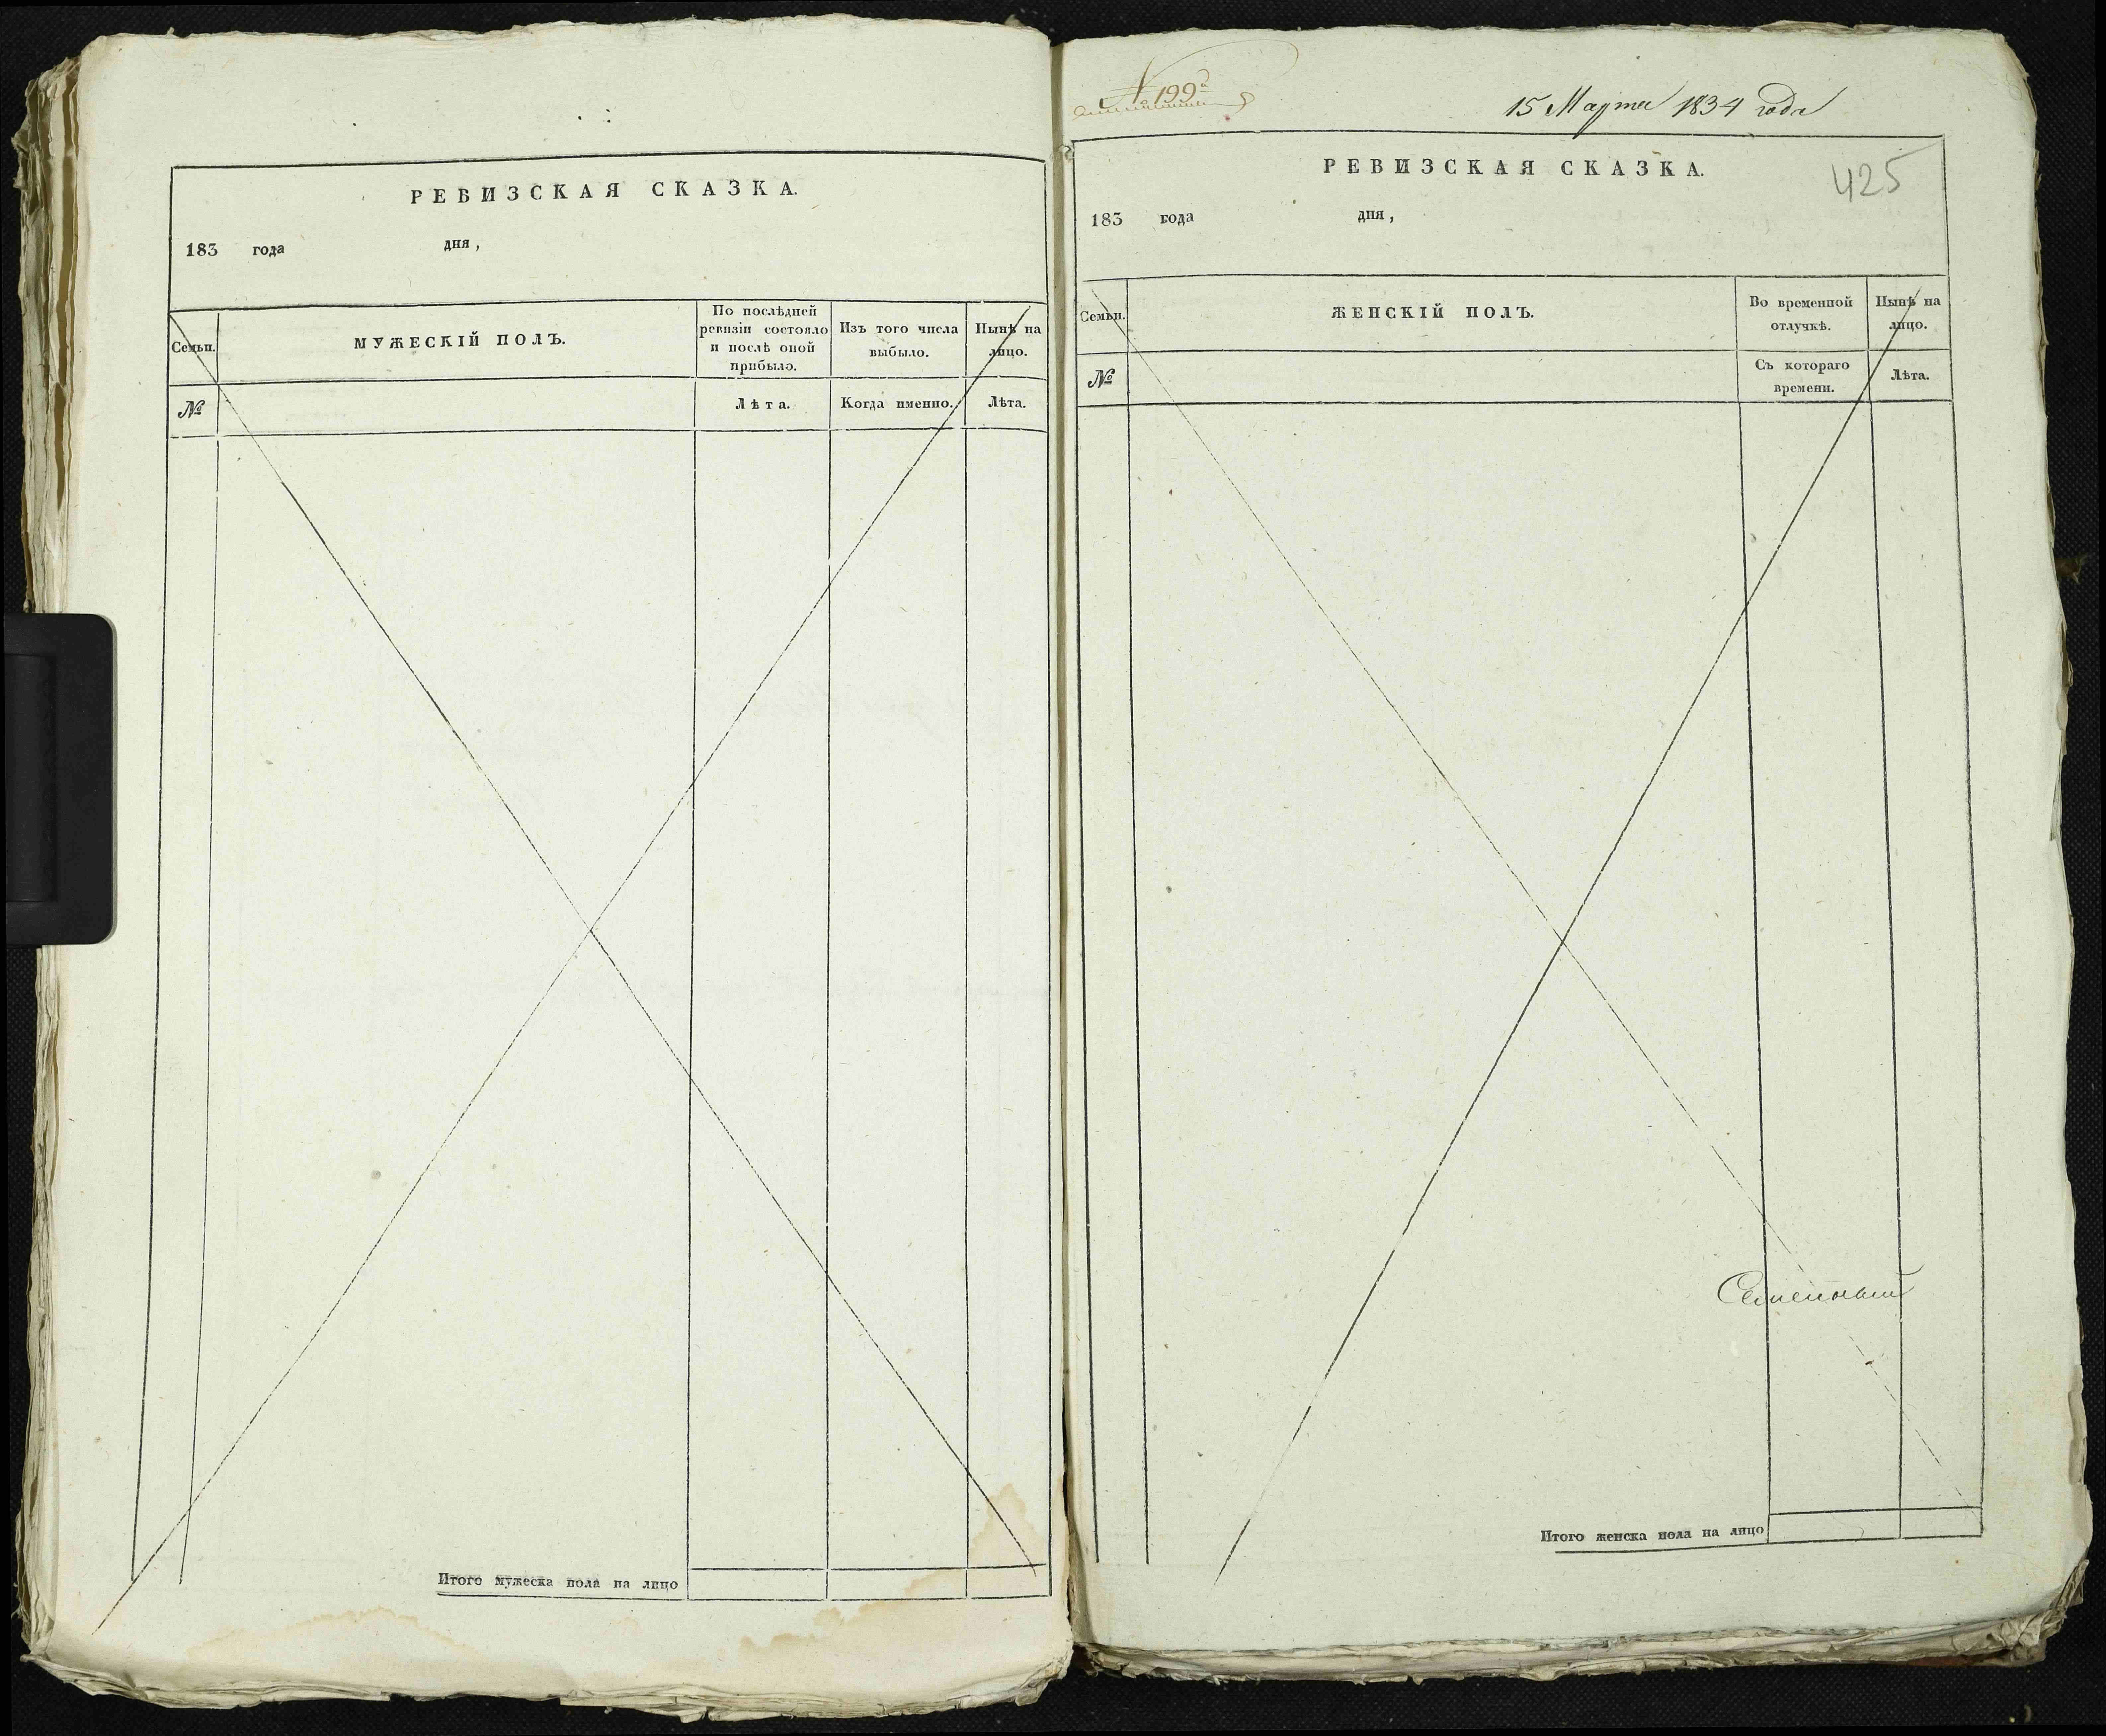 РЕВИЗСКАЯ СКАЗКА.
183 года дня,
Семьи.
МУЖЕСКІЙ ПОЛЪ.
По послѣдней
ревизіи состояло
и послѣ оной
прибыло.
Изъ того числа
выбыло.
Нынѣ на
лицо.
№
Лѣта.
Когда именно.
Лѣта.
Итого мужеска пола на лицо
№ 199й
15 Марта 1834 года
РЕВИЗСКАЯ СКАЗКА.
425
183 года дня,
Семьи.
ЖЕНСКІЙ ПОЛЪ.
Во временной
отлучкѣ.
Нынѣ на
лицо.
№
Съ котораго
времени.
Лѣта.
Итого женска пола на лицо